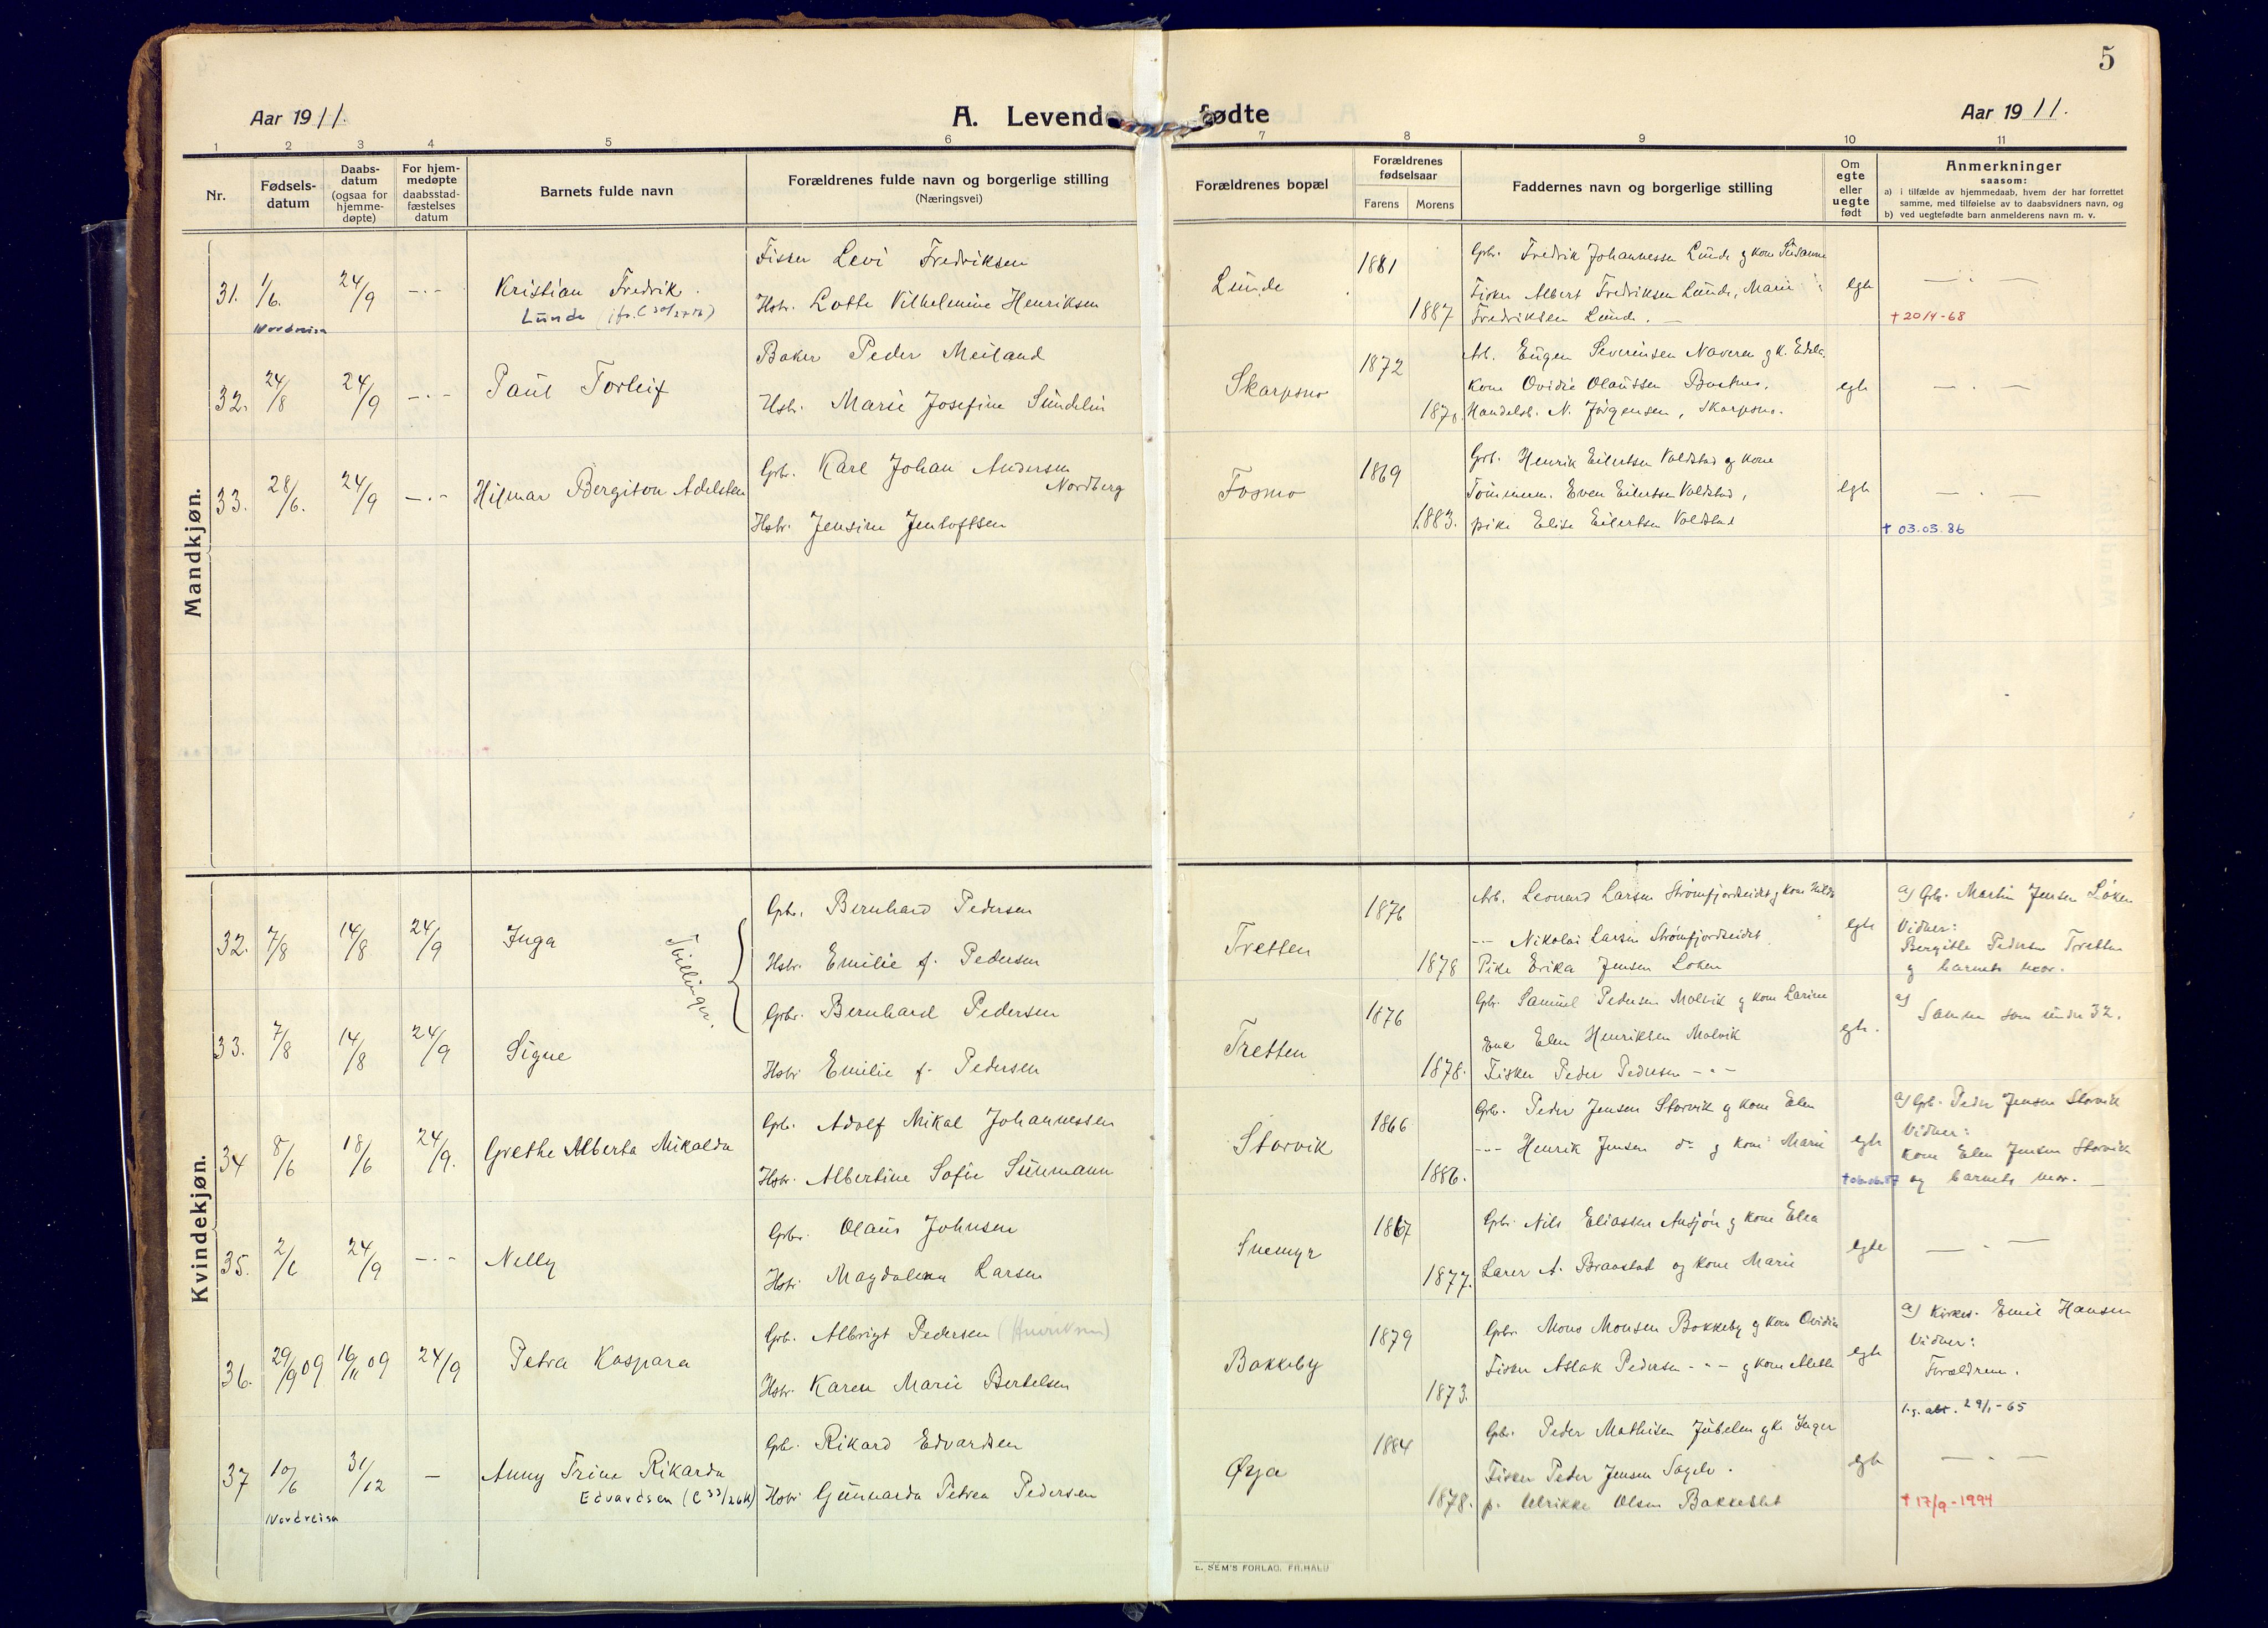 5
Aar 1911.
A. Levende
fødte
Aar 1911.
1 2 3 4 5 6 7 8 9 10 11
Nr.
Fødsels-
datum
Daabs-
datum
(ogsaa for
hjemme-
døpte)
For hjem-
medøpte
daabsstad-
fæstelses
datum
Barnets fulde navn
Forældrenes fulde navn og borgerlige stilling
(Næringsvei)
Forældrenes bopæl
Forældrenes
fødselsaar
Farens Morens
Faddernes navn og borgerlige stilling
Om
egte
eller
uegte
født
Anmerkninger
saasom:
a) i tilfælde av hjemmedaab, hvem der har forrettet
samme, med tilføielse av to daabsvidners navn, og
b) ved uegtefødte barn anmelderens navn m. v.
Mandkjøn.
31. 1/6. 24/9 -.-
Nordreisa
Kristian Fredrik.
Lunde
Fisker Levi Fredriksen
Hstr. Lotte Vilhelmine Henriksen
Lunde
1881
1887
Grbr. Fredrik Johannessen Lunde g kone Susanna
Fisker Albert Fredriksen Lunde, Marie
Fredriksen Lunde. —
egte
— . —
† 20/4-68
32. 24/8 24/9 -.-
Paul Torleif
Baker Peder Meiland
Hstr. Marie Josefine Sundelin
Skarpsno
1872
Arb. Eugen Severinsen Naveren g k.
kone Ovidie Olaussen
Handelsb. N. Jörgensen, Skarpsno.
egte
— . —
33. 28/6. 24/9 -.-
Hilmar Bergiton Adelsten
Grb. Karl Johan Andersen
Nordberg
Hstr. Jensine Jentoftsen
Fosmo
1869
1883.
Grb. Henrik Eilertsen Voldstad og kone
Tömmerm. Even Eilertsen Voldstad,
pike Elise Eilertsen Voldstad
egte
— . —
† 03.03.86
Kvindekjøn.
32. 7/8 14/8 24/9
Inga
Tvillinger.
Grbr. Bernhard Pedersen
Hstr. Emilie f. Pedersen
Tretten
1876
1878
Arb. Leonard Larsen Strömfjordeidet g kone Hilda
--- Nikolai Larsen Strömfjordeidet
Pike Erika Jensen Loken
egte
a) Grb. Martin Jensen Löken
Vidner:
Bergitte Pedersen Tretten
g barnets mor.
33. 7/8 14/8 24/9
Signe
Grbr. Bernhard Pedersen
Hstr Emilie f. Pedersen
Tretten
1876
1878.
Grbr. Samuel Pedersen Molvik g kone Larine
Enke Elen Henriksen Molvik
Fisker Peder Pedersen - " -
egte.
a)
Samme som under 32.
34 8/6 18/6 24/9.
Grethe Alberta Mikalda
Grb. Adolf Mikal Johannessen
Hstr. Albertine Sofie Sunmann
Storvik
1866
1886.
Grb. Peder Jensen Storvik g kone Elen
--- Henrik Jensen do g kone Marie
egte
† 06.06.87
a) Grb. Peder Jensen Storvik
Vidner:
kone Elen Jensen Storvik
og barnets mor. —
35. 2/6 24/9 -.-
Nelly
Grbr. Olaus Johnsen
Hstr. Magdalena Larsen
Snemyr
1867
1877.
Grbr. Nils Eliassen Ansjön g kone Elea
Lærer A. Braastad og kone Marie
egte
— . —
36. 29/9 09 16/11 09 24/9
Petra Kaspara
Grb. Albrigt Pedersen (Henriksen)
Hstr. Karen Marie Bertelsen
Bakkeby
1879
1873.
Grbr. Mons Monsen Bakkeby g kone Ovidia
Fisker Aslak Pedersen - " - g kone Alette
egte
a) Kirkes. Emil Hansen
Vidner:
Forældrene.
l.g. att. 29/1-65
37 10/6 31/12 —
Nordreisa
Anny Trine Rikarda
Edvardsen (C 33/26k)
Grb. Rikard Edvardsen
Hstr. Gunnarda Petrea Pedersen
Øya
1884
1878.
Grb. Peder Mathisen Jubelen g k. Inger
Fisker Peder Jensen Sagelv.
p. Ulrikke Olsen Bakkeslet
egte
— . —
† 17/9-1994
E. SEM'S FORLAG. FR.HALD